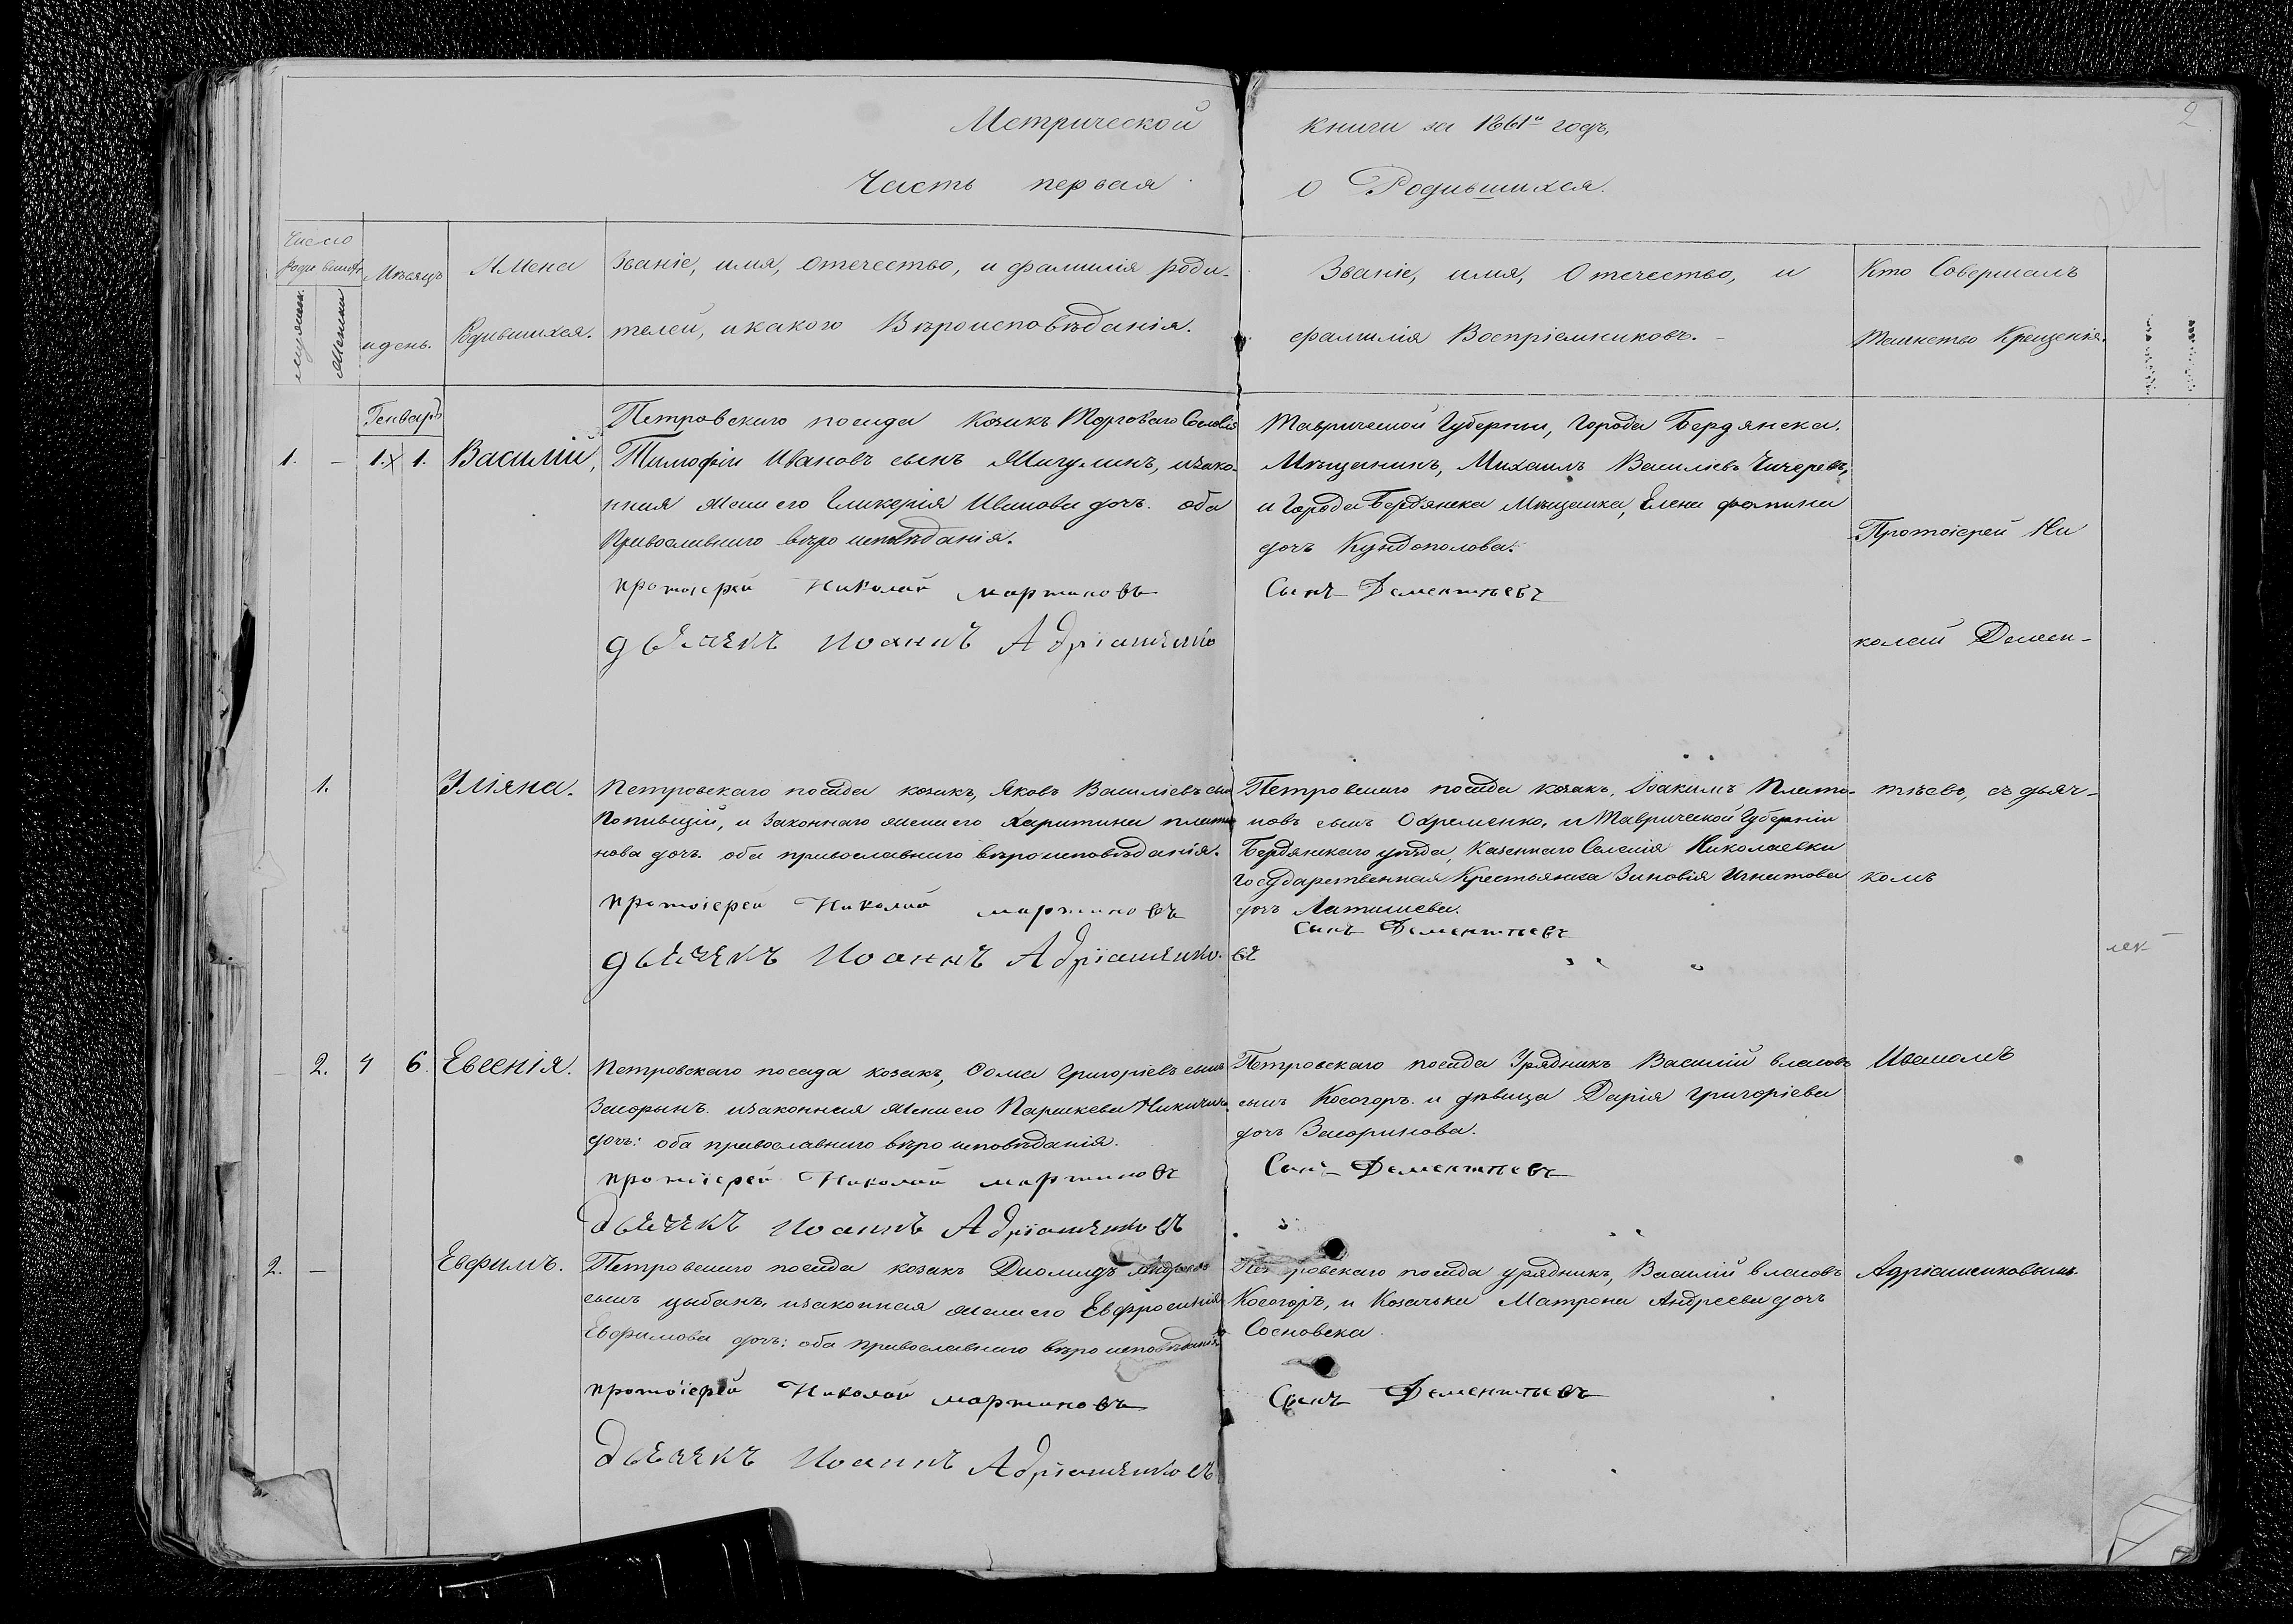 2
Метрической книги за 1861й годъ,
Часть первая о Родившихся.
Число
родившихся
мужеск.
женски
Мѣсяцъ
и день.
Имена
Родившихся.
Званіе, имя, Отечество, и фамилія роди-
телей, и какого Вѣроисповѣданія.
Званіе, имя, Отечество, и
фамилія Воспріемниковъ.
Кто Совершалъ
таинство Крещенія.
Генварь
1. – 1. 1. Василій,
Петровскаго посада Козакъ Торговаго Сословія
Тимофій Ивановъ сынъ Мигулинъ, изако-
нная жена его Гликерія Иванова дочь. оба
Православнаго вѣроисповѣданія.
протоіерей Николай мартиновъ
дьячекъ Иоаннъ Адріашенко
Таврической Губерніи, Города Бердянска.
Мѣщанинъ, Михаилъ Василіевъ Чичеревъ,
и Города Бердянска Мѣщанка, Елена фомина
дочь Кундополова.
Сынъ Дементьевъ
Протоіерей Ни
колай Демен-
1. Уліяна.
Петровскаго посада козакъ, Яковъ Василіевъ сынъ
Попивщій, и Законнаго жена его Харитина плато
нова дочь. оба православнаго вѣроисповѣданія.
протоіерей Николай мартиновъ
дьячекъ Иоаннъ Адріашенко-
Петровскаго посада козакъ, Іоакимъ Плато-
новъ сынъ Охременко, и Таврической Губерніи
Бердянскаго уѣзда, Казеннаго Селенія Николаевки
Государственная Крестьянка Зиновія Игнатова
дочь Латишева.
Сынъ Дементьевъ
въ
тьевъ, съ дьяч-
комъ
лек
2. 4 6. Евгенія.
Петровскаго посада козакъ, Фома Григоріевъ сынъ
Загорынъ. изаконная жена его Параскева Никитина
дочь: оба православнаго вѣроисповѣданія.
протоіерей Николай мартиновъ
дьячекъ Иоаннъ Адріашенковъ
Петровскаго посада Урядникъ Василій власовъ
сынъ Косогоръ. и дѣвица Дарія Григоріева
дочь Загоринова.
Сынъ Дементьевъ
Иваномъ
2. – Евфимъ.
Петровскаго посада козакъ Диомидъ Андреевъ
сынъ цыбань, изаконная жена его Евфросинія
Евфимова дочь: оба православнаго вѣроисповѣданія
протоіерей Николай мартиновъ
дьячекъ Иоаннъ Адріашенковъ
Петровскаго посада урядникъ, Василій власовъ
Косогоръ, и Козачька Матрона Андреева дочь
Сосновска.
Сынъ Дементьевъ
Адріашенковымъ